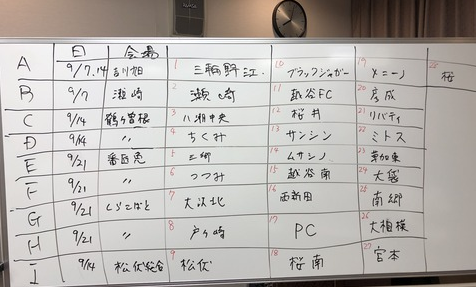 日 会場
A 9/7.14 吉川旭 1 三輪野江 10 ブラックジャガー 19 メニーノ 28 桜
B 9/7 瀬崎 2 瀬崎 11 越谷FC 20 彦成
C 9/14 鶴ヶ曽根 3 八潮中央 12 桜井 21 リバティ
D 9/14 〃 4 ちくみ 13 サンシン 22 ミトス
E 9/21 番匠免 5 三郷 14 ムサシノ 23 草加東
F 9/21 〃 6 つつみ 15 越谷南 24 大袋
G 9/21 しらこばと 7 大沢北 16 西新田 25 南郷
H 9/21 〃 8 戸ヶ崎 17 PC 26 大相模
I 9/14 松伏総合 9 松伏 18 桜南 27 宮本